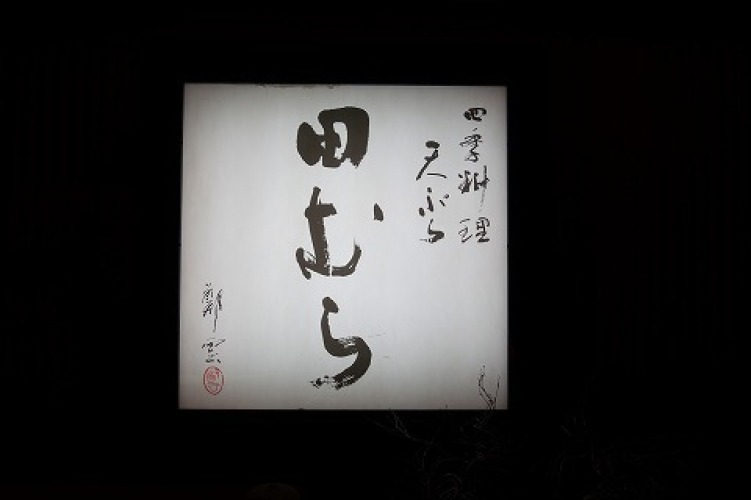 四季料理
天ぷら
田むら